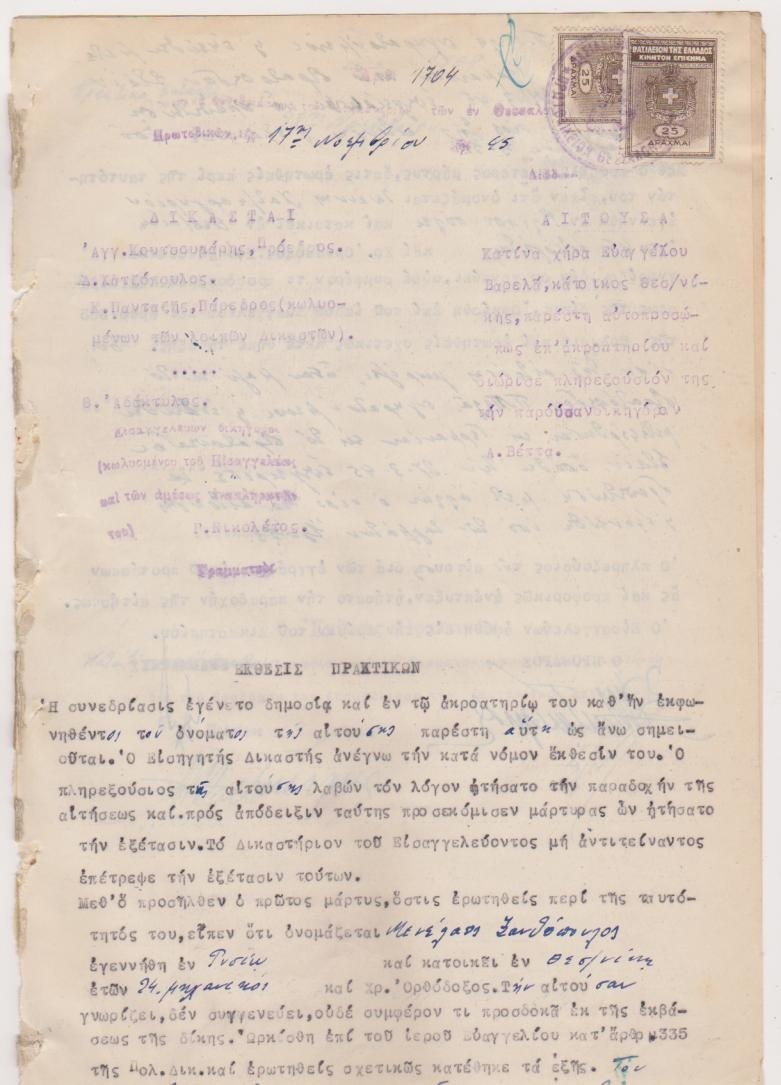 1704
τῶν ἐν Θεσσαλ
Πρωτοδικῶν τῆς 17ης Νοεμβρίου 45
ΒΑΣΙΛΕΙΟΝ ΤΗΣ ΕΛΛΑΔΟΣ
ΚΙΝΗΤΟΝ ΕΠΙΣΗΜΑ
25
ΔΡΑΧΜΑΙ
25
ΔΡΑΧΜΑΙ
ΔΙΚΑΣΤΑΙ
Ἀγγ. Κουτσουμάρης, Πρόεδρος.
Δ. Χατζόπουλος.
Κ. Πανταζῆς, Πάρεδρος(κωλυο-
μένων τῶν λοιπῶν Δικαστῶν).
.....
Θ. Ἀδάκτυλος.
Εἰσαγγελεύων δικηγόρος
(κωλυομένου τοῦ Εἰσαγγελέως
καί τῶν ἀμέσως ἀναπληρωτῶν
του)
Γ. Νικολέτος.
Γραμματεύς
ΑΙΤΟΥΣΑ
Κατίνα χήρα Εὐαγγέλου
Βαρελᾶ, κάτοικος Θεσ/νί-
κης, παρέστη αὐτοπροσώ-
πως ἐπ' ἀκροατηρίου καί
διώρισε πληρεξούσιόν της
τήν παροῦσαν δικηγόρον
Α. Βέττα.
ΕΚΘΕΣΙΣ ΠΡΑΚΤΙΚΩΝ
Ἡ συνεδρίασις ἐγένετο δημοσίᾳ καί ἐν τῷ ἀκροατηρίῳ του καθ' ἥν ἐκφω-
νηθέντος τοῦ ὀνόματος τῆς αἰτούσης παρέστη αὕτη ὡς ἄνω σημει-
οῦται. Ὁ Εἰσηγητής Δικαστής ἀνέγνω τήν κατά νόμον ἔκθεσίν του. Ὁ
πληρεξούσιος τῆς αἰτούσης λαβών τόν λόγον ᾐτήσατο τήν παραδοχήν τῆς
αἰτήσεως καί πρός ἀπόδειξιν ταύτης προσεκόμισεν μάρτυρας ὧν ᾐτήσατο
τήν ἐξέτασιν. Τό Δικαστήριον τοῦ Εἰσαγγελεύοντος μή ἀντιτείναντος
ἐπέτρεψε τήν ἐξέτασιν τούτων.
Μεθ' ὅ προσῆλθεν ὁ πρῶτος μάρτυς, ὅστις ἐρωτηθείς περί τῆς ταυτό-
τητός του, εἶπεν ὅτι ὀνομάζεται Μενέλαος Ξανθόπουλος
ἐγεννήθη ἐν Ρυσίῳ καί κατοικεῖ ἐν Θεσ/νίκῃ
ἐτῶν 24. μηχανικός καί χρ. Ὀρθόδοξος. Τήν αἰτοῦσαν
γνωρίζει, δέν συγγενεύει, οὐδέ συμφέρον τι προσδοκᾶ ἐκ τῆς ἐκβά-
σεως τῆς δίκης. Ὡρκίσθη ἐπί τοῦ ἱεροῦ Εὐαγγελίου κατ' ἄρθρ 335
τῆς Πολ. Δικ. καί ἐρωτηθείς σχετικῶς κατέθηκε τά ἑξῆς. Τόν